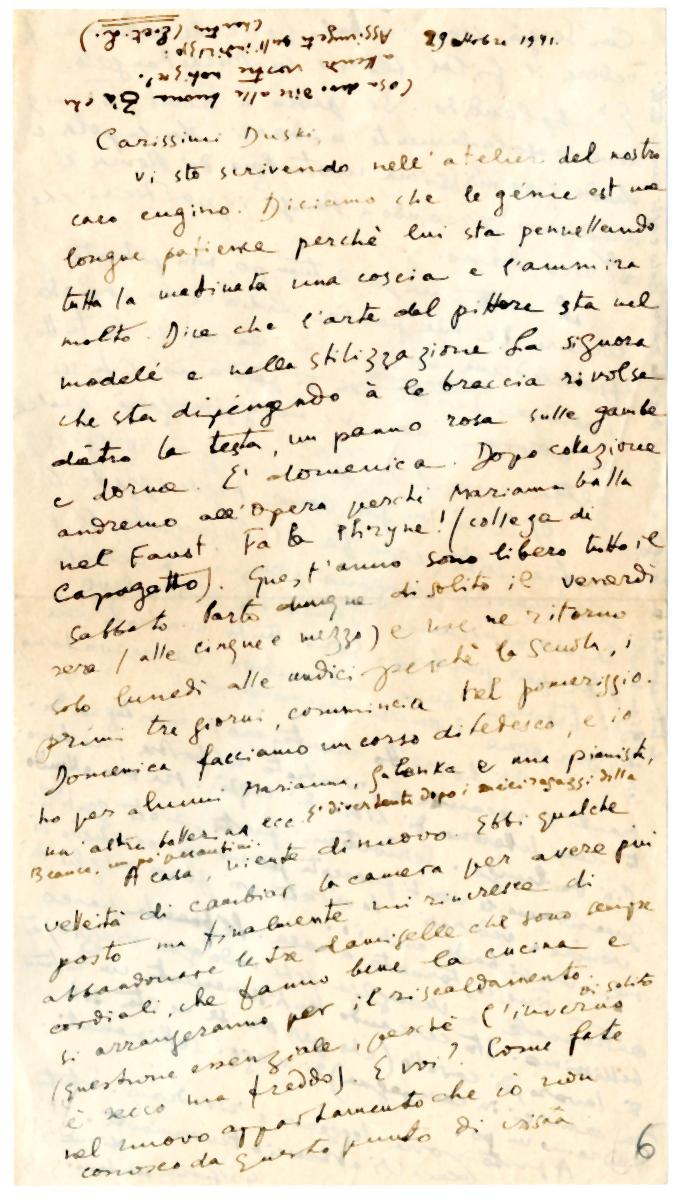 29 ottobre 1941.
Cosa devo dire alla buona Zia che
attende vostre notizie?
Aggiungete sull'indirizzo:
Carissimi Duski,
vi sto scrivendo nell'atelier del nostro
caro cugino. Diciamo che le génie est une
longue patience perchè lui sta pennellando
tutta la mattinata una coscia e l'ammira
molto. Dice che l'arte del pittore sta nel
modelé e nella stilizzazione. La signora
che sta dipingendo à le braccia rivolse
dietro la testa, un panno rosa sulle gambe
e dorme. E' domenica. Dopo colazione
andremo all'Opera perchè Marianna balla
nel Faust. Fa la Phryne! (collega di
Capogatto). Quest'anno sono libero tutto il
sabbato. Parto dunque di solito il venerdì
sera (alle cinque e mezzo) e me ne ritorno
solo lunedì alle undici perchè la Scuola, i
primi tre giorni, commincia nel pomeriggio.
Domenica facciamo un corso di tedesco, e io
ho per alunni Marianna, e una pianista,
un'altra ballerina ecc. E' divertente dopo i miei ragazzi della
Beauce, un po'
A casa, niente di nuovo. Ebbi qualche
velleità di cambiar la camera per avere più
posto ma finalmente mi rincresce di
abbandonare le tre damigelle che sono sempre
cordiali, che fanno bene la cucina e
si arrangeranno per il riscaldamento.
(questione essenziale, perchè l'inverno di solito
è secco ma freddo). E voi? Come fate
nel nuovo appartamento che io non
conosco da questo punto di vista
6